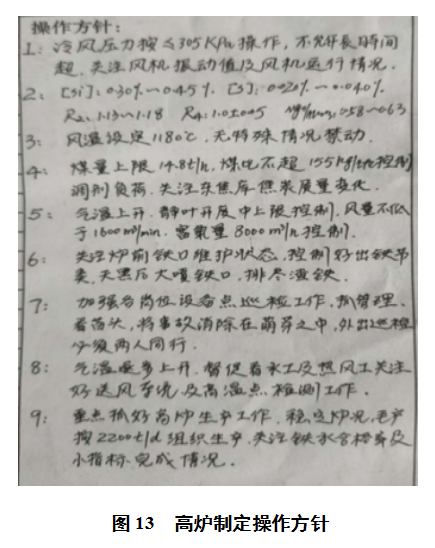 操作方针:
1: 冷风压力按≤305KPa操作,不允许长时间
超.关注风机振动值及风机运行情况.
2: [Si]:0.30%~0.45% [S]:0.020%~0.040%
R₂:1.13~1.18 R₄:1.0±0.05 0.58~0.63
3: 风温设定1180℃,无特殊情况禁动.
4: 煤量上限14.8t/h,煤比不超155kg/控制
调剂负荷.关注焦库焦炭质量变化.
5: 气温上升.静叶开展中上限控制,风量不低
于1600m³/min.富氧量8000m³/h控制.
6: 关注炉前铁口维护状态,控制好出铁节
奏,天黑后大喷铁口,排尽渣铁.
7: 加强各岗位设备点巡检工作,抓管理.
看苗头,将事故消除在萌芽之中,外出巡检
必须两人同行.
8: 气温逐步上升.督促看水工及热风工关注
好送风系统及高温点检测工作.
9: 重点抓好高炉生产工作,稳定炉况,日产
按2200t/d组织生产.关注铁水含及
小指标完成情况.
图 13 高炉制定操作方针